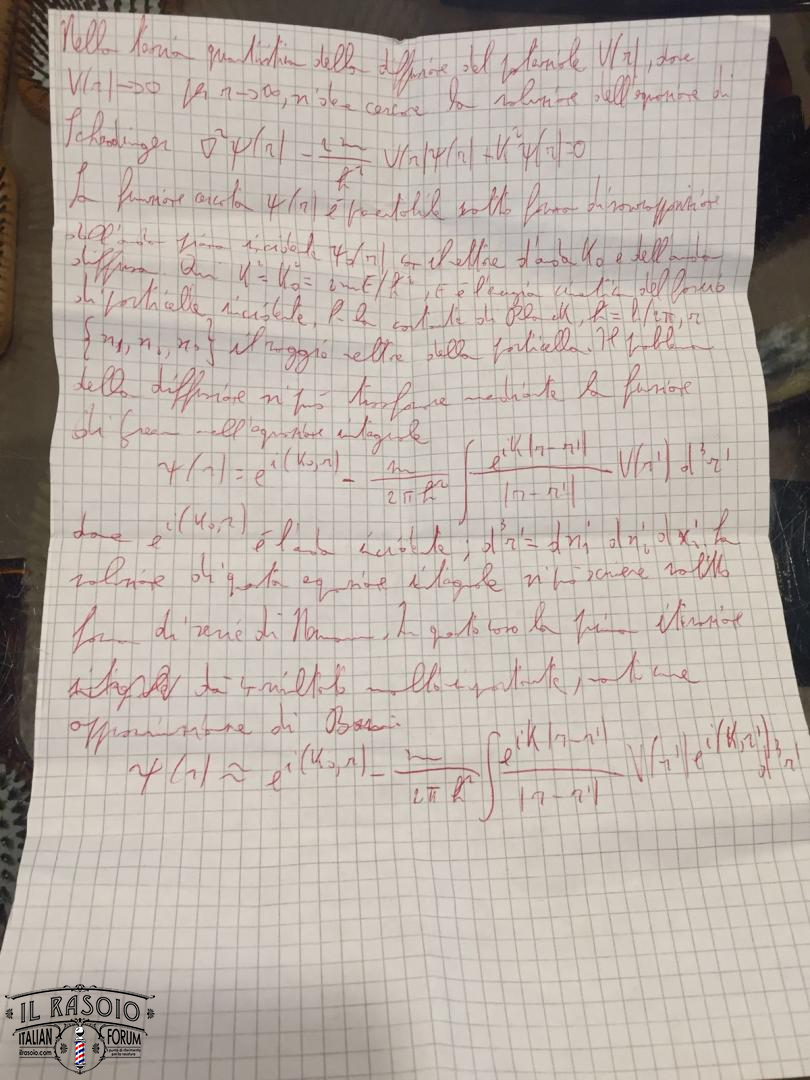 Nella teoria quantistica della diffusione del potenziale V(r), dove
V(r)→0 per r→∞, si deve cercare la soluzione dell'equazione di
Schrodinger ∇²ψ(r) - 2m/ħ² V(r)ψ(r) + K²ψ(r)=0
La funzione cercata ψ(r) è presentabile sotto forma di sovrapposizione
dell'onda piana incidente ψ₀(r) il vettore d'onda K₀ e dell'onda
diffusa. Qui K²=K₀²= 2mE/ħ², E è l'energia cinetica del fascio
di particelle incidente, la costante di Planck, ħ=h/2π, r
{x₁, x₂, x₃} il raggio vettore della particella. Il problema
della diffusione si può trasformare mediante la funzione
di Green nell'equazione integrale
ψ(r) = e^i(K₀,r) - m/2πħ² ∫ e^iK|r-r'|/|r-r'| V(r') d³r'
dove e^i(K₀,r) è l'onda incidente; d³r'= dx₁' dx₂' dx₃'. La
soluzione di questa equazione integrale si può scrivere sotto
forma di serie di Neumann. In questo caso la prima iterazione
dà un risultato molto importante, noto come
approssimazione di Born:
ψ(r) ≈ e^i(K₀,r) - m/2πħ² ∫ e^iK|r-r'|/|r-r'| V(r') e^i(K₀,r') d³r'
IL RASOIO
ITALIAN FORUM
ilrasoio.com